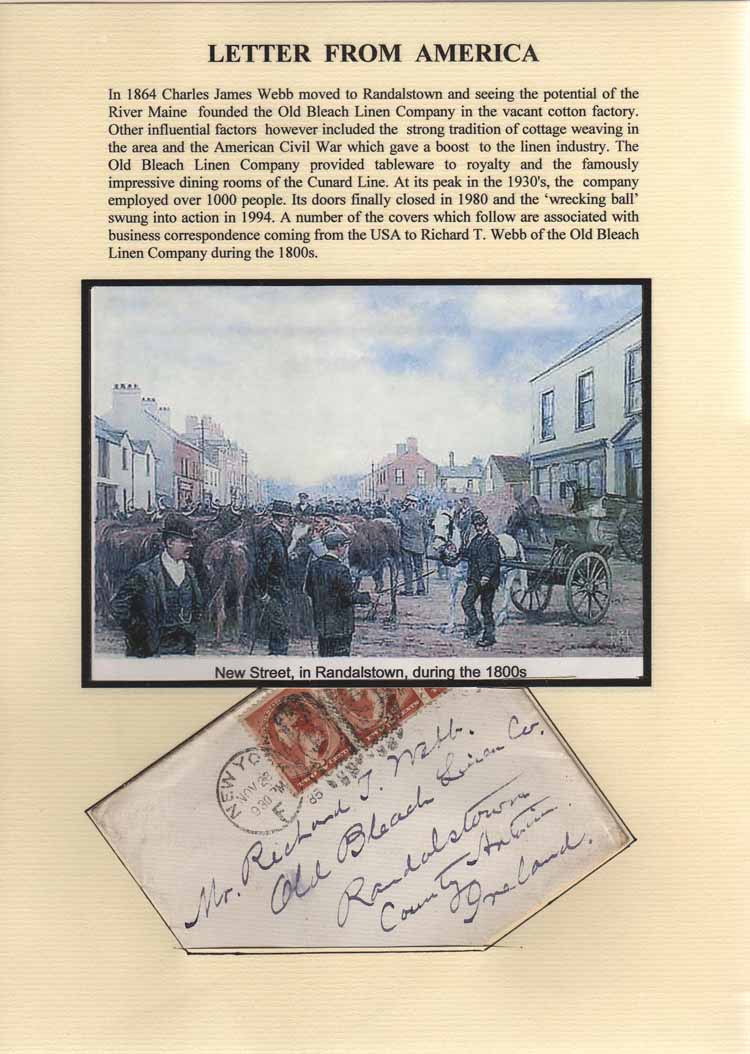 LETTER FROM AMERICA
In 1864 Charles James Webb moved to Randalstown and seeing the potential of the
River Maine founded the Old Bleach Linen Company in the vacant cotton factory.
Other influential factors however included the strong tradition of cottage weaving in
the area and the American Civil War which gave a boost to the linen industry. The
Old Bleach Linen Company provided tableware to royalty and the famously
impressive dining rooms of the Cunard Line. At its peak in the 1930's, the company
employed over 1000 people. Its doors finally closed in 1980 and the ‘wrecking ball’
swung into action in 1994. A number of the covers which follow are associated with
business correspondence coming from the USA to Richard T. Webb of the Old Bleach
Linen Company during the 1800s.
New Street, in Randalstown, during the 1800s
NEW YO
NOV 28
930 PM
85
F
Mr. Richard T. Webb.
Old Bleach Linen Co.
Randalstown
County Antrim.
Ireland.